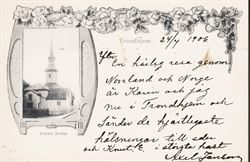 Trondhjem
24/7 1906
En härlig resa genom
Norrland och Norge
är Karin och jag
nu i Trondhjem och
sänder de hjärtligaste
hälsningar till eder
och Knut E. i största hast
Axel